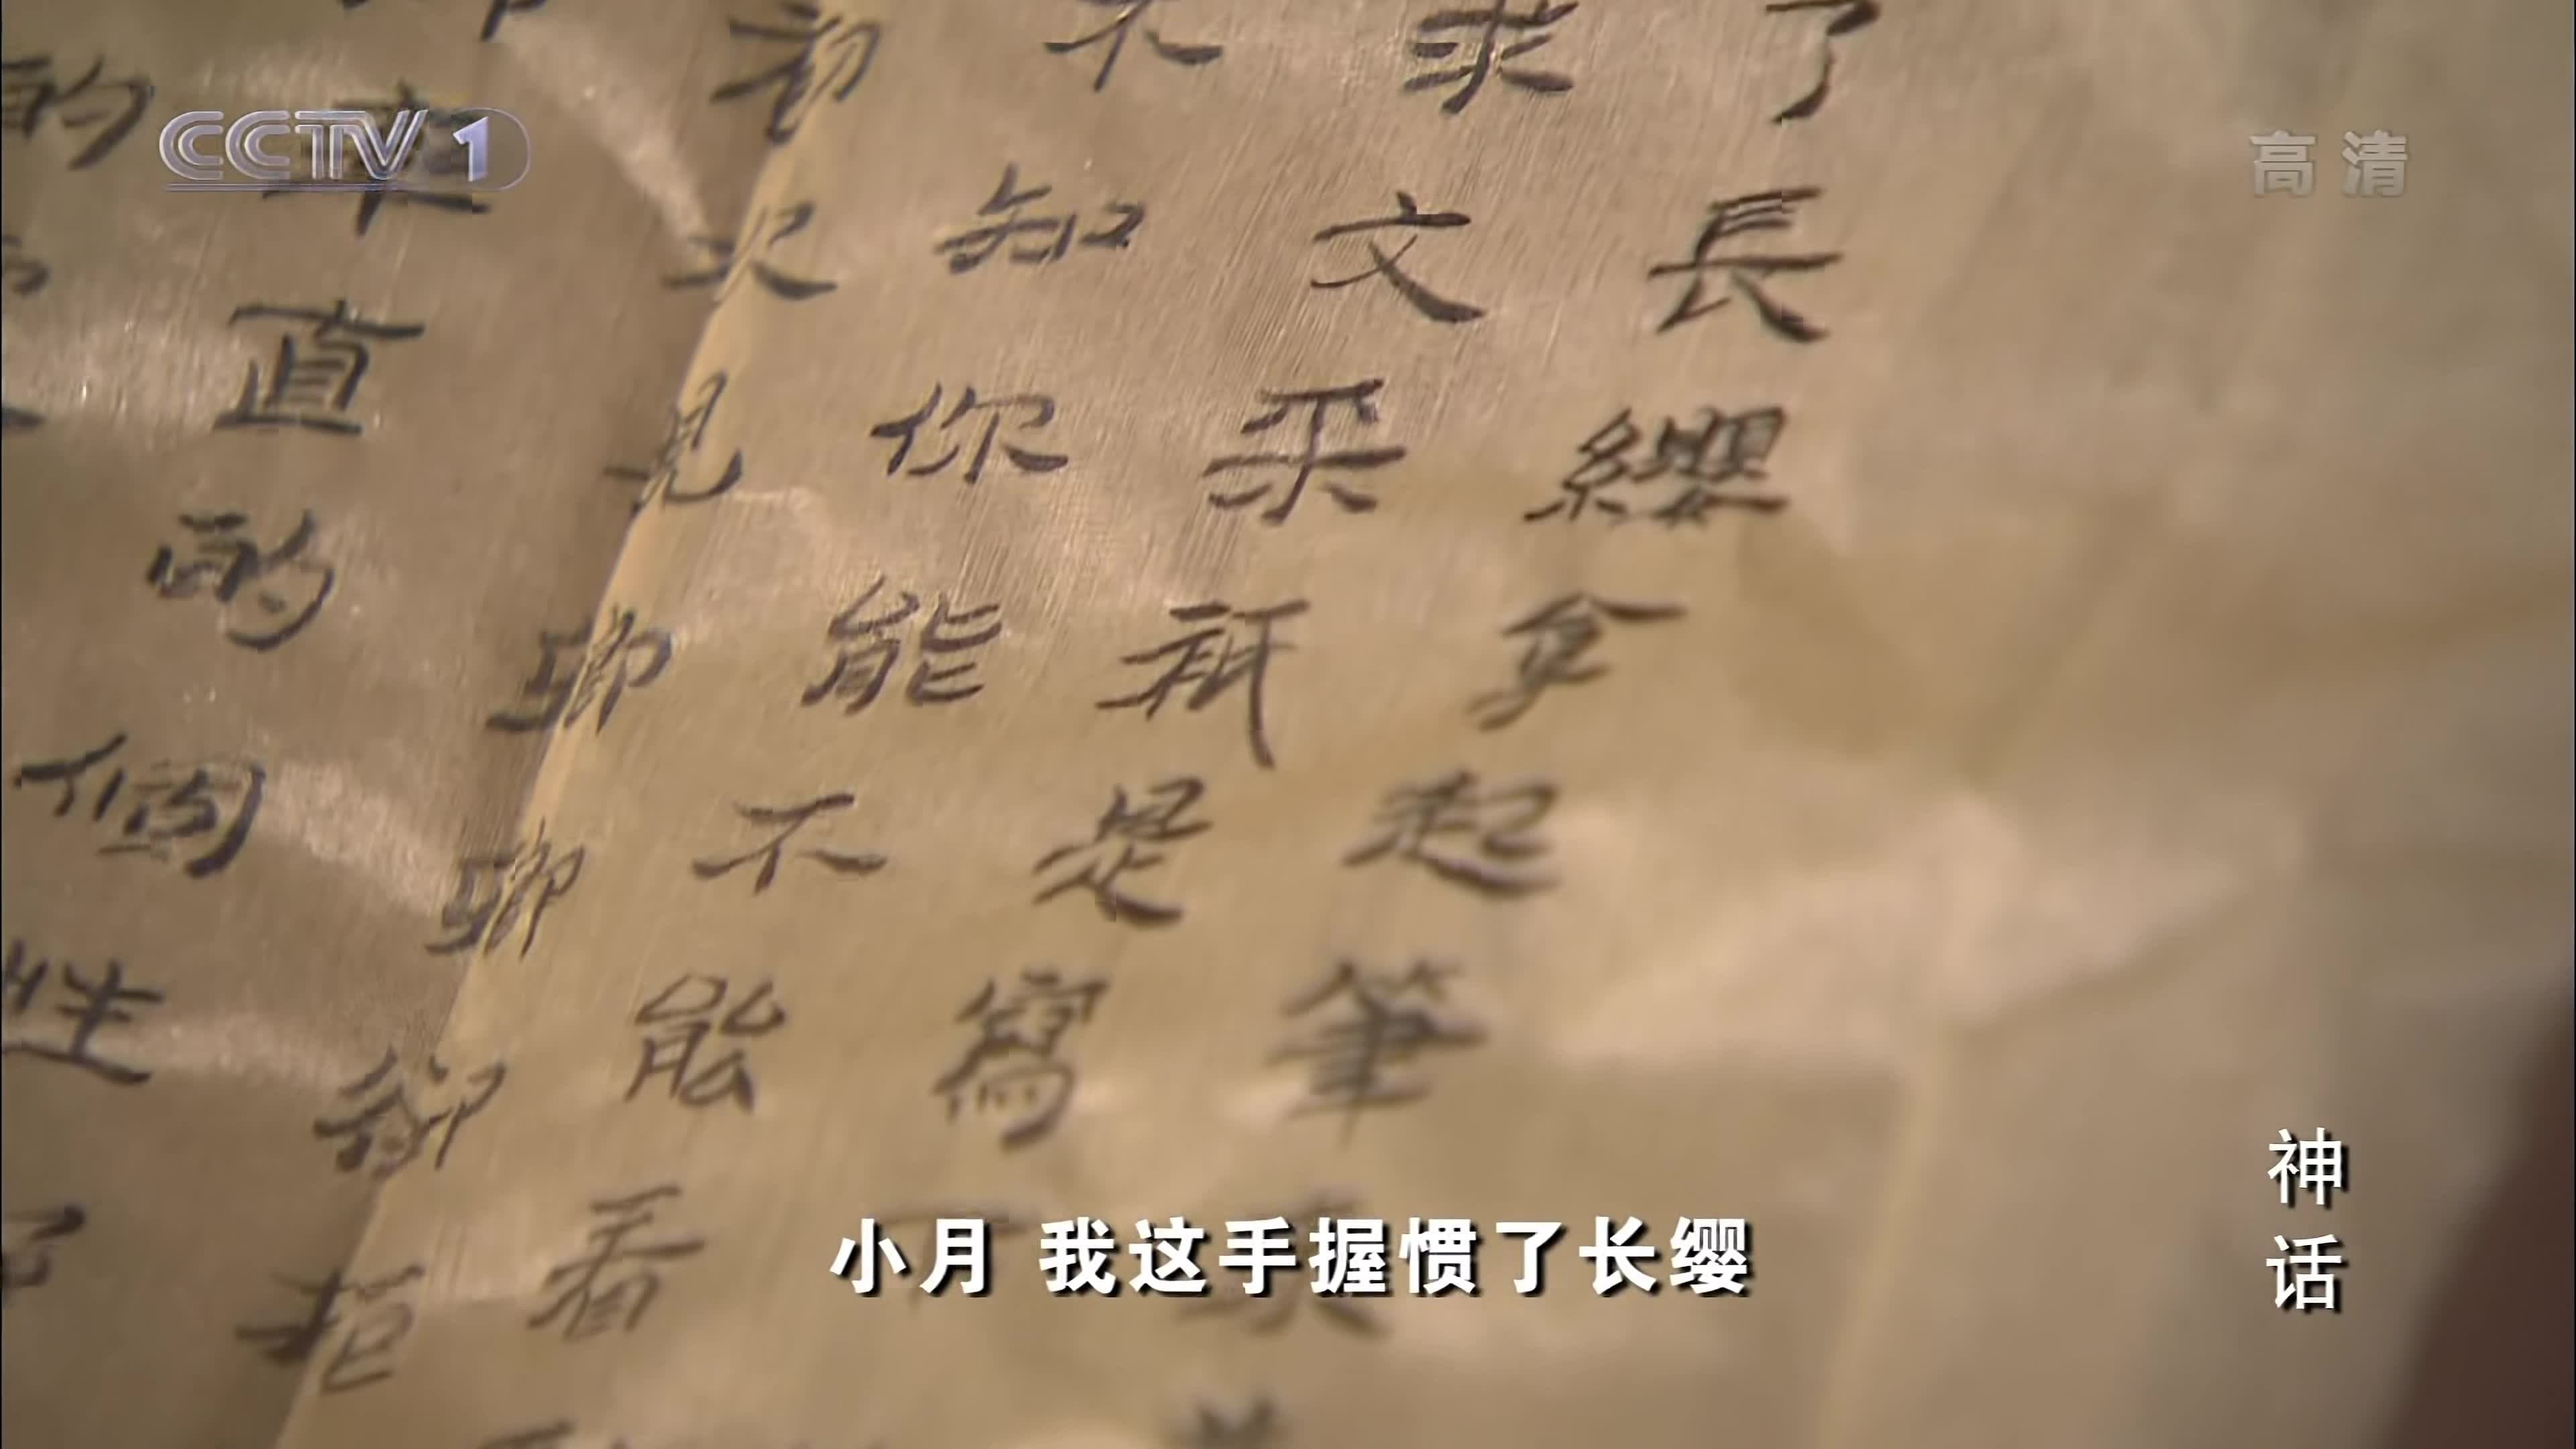 CCTV 1
高清
了長纓拿起筆來
求文采衹是寫下
不知你能不能看
初次見卿卿卻拒
卿率直的個性
的
了
小月 我这手握惯了长缨
神话